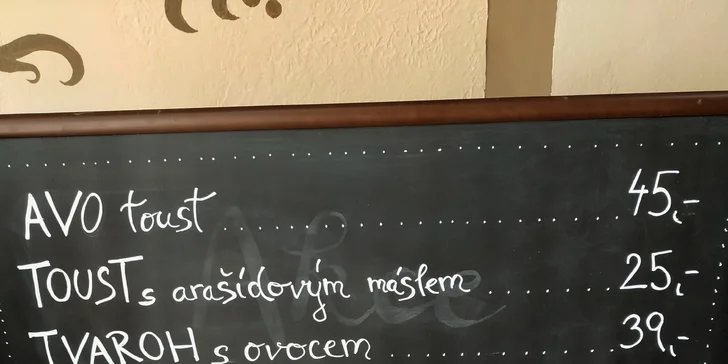 AVO toust .......................... 45,-
TOUST s arašídovým máslem ....... 25,-
TVAROH s ovocem ................ 39,-
Akce